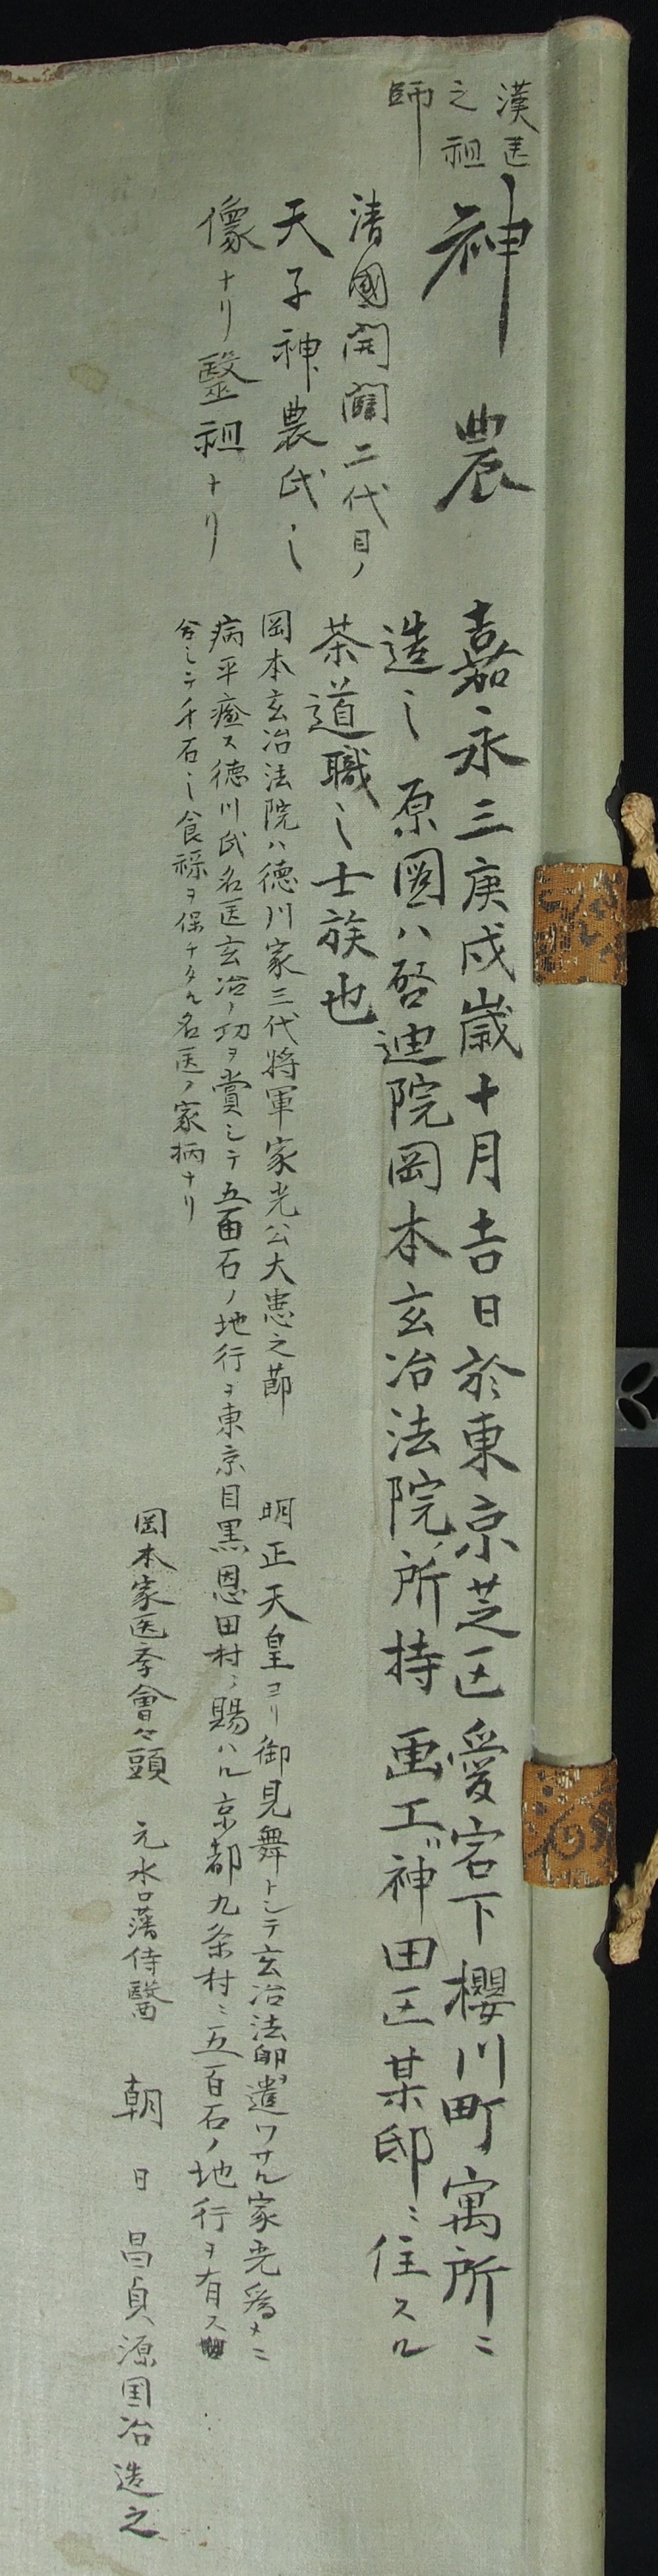 漢医
之祖
師
神農
清國開闢二代目ノ
天子神農氏之
像ナリ毉祖ナリ
嘉永三庚戌歳十月吉日於東京芝区愛宕下櫻川町寓所ニ
造之 原圖ハ啓迪院岡本玄冶法院所持 画工神田区某邸ニ住スル
茶道職之士族也
岡本玄冶法院ハ徳川家三代将軍家光公大患之節 明正天皇ヨリ御見舞トシテ玄冶法印遣ワサル家光為メニ
病平癒ス徳川氏名医玄冶ノ功ヲ賞シテ五百石ノ地行ヲ東京目黒恩田村ニ賜ハル京都九条村ニ五百石ノ地行ヲ有ス
合シテ千石之食禄ヲ保チタル名医ノ家柄ナリ
岡本家医季會々頭 元水口藩侍醫 朝日昌貞源国冶造之